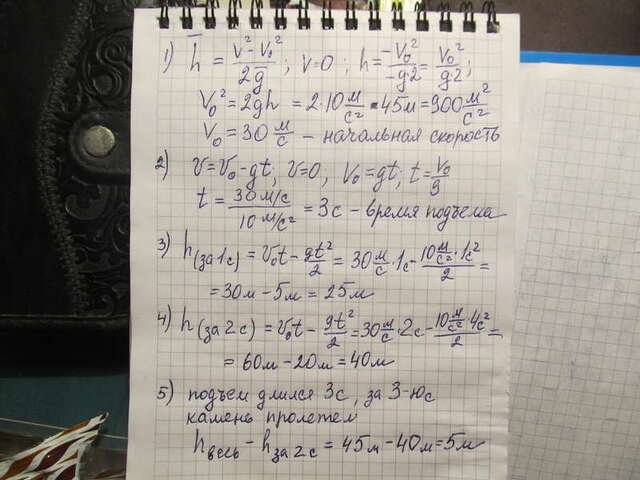 1) h̅ = (v² - v₀²)/(2g̅) ; v=0 ; h = (-v₀²)/(-g2) = v₀²/(g2) ;
v₀² = 2gh = 2·10 м/с² · 45м = 900 м²/с²
v₀ = 30 м/с – начальная скорость
2) v = v₀ - gt; v=0, v₀ = gt; t = v₀/g
t = (30 м/с)/(10 м/с²) = 3с – время подъема
3) h(за 1с) = v₀t - gt²/2 = 30 м/с · 1с - (10 м/с² · 1с²)/2 =
= 30м - 5м = 25м
4) h(за 2с) = v₀t - gt²/2 = 30 м/с · 2с - (10 м/с² · 4с²)/2 =
= 60м - 20м = 40м
5) подъем длился 3с, за 3-юс
камень пролетел
hвесь - hза 2с = 45м - 40м = 5м